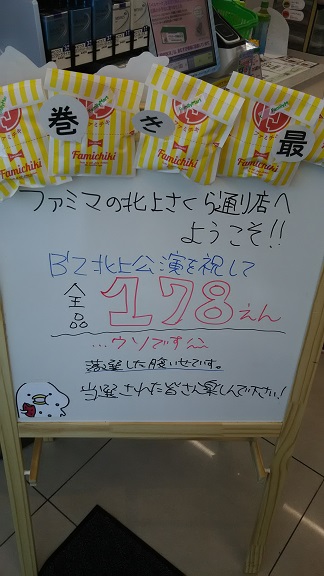 巻き最
Famichiki
Famichiki
Famichiki
Famichiki
ファミマの北上さくら通り店へ
ようこそ!!
B'z北上公演を祝して
全品178えん
...ウソです
落選した腹いせです。
当選された皆さん楽しんで下さい!